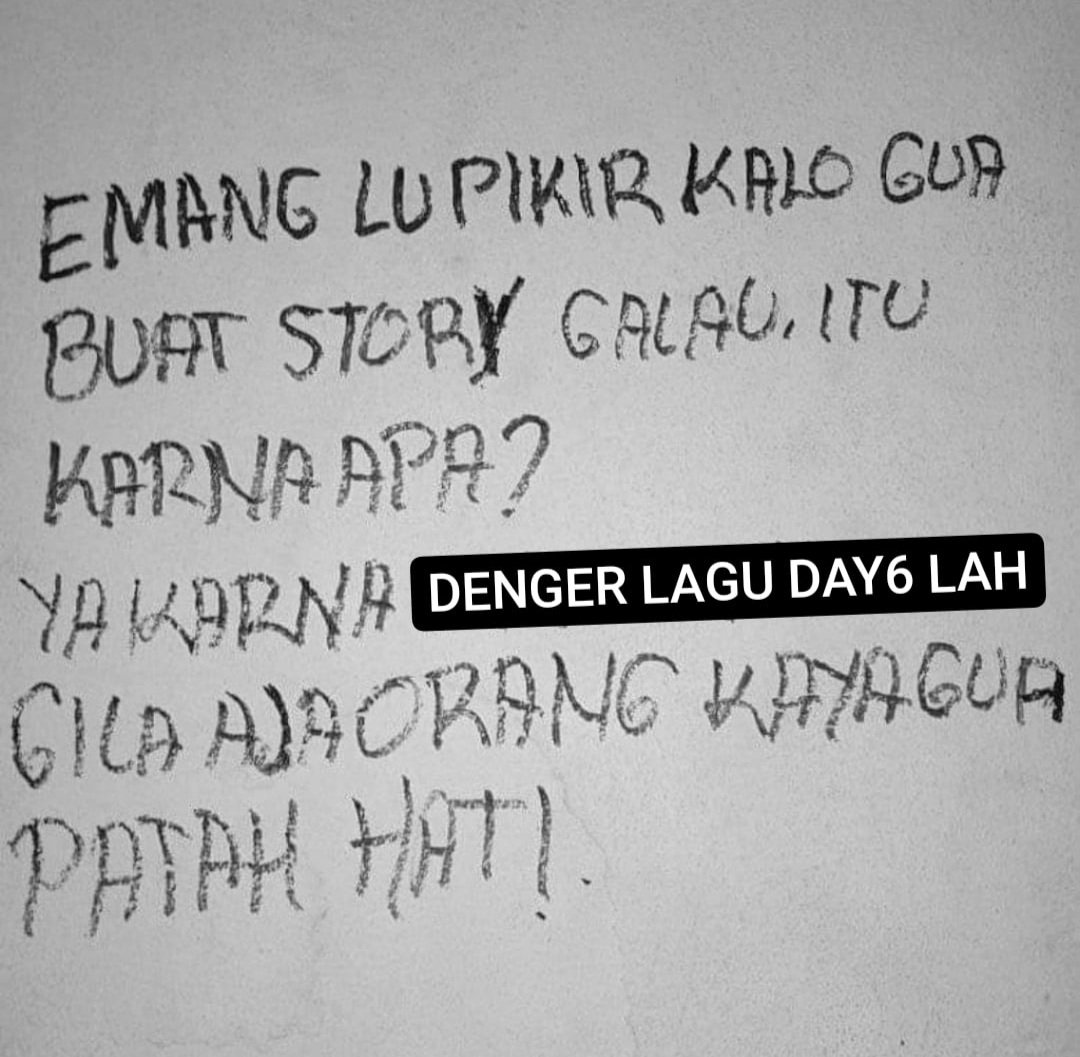 EMANG LU PIKIR KALO GUA
BUAT STORY GALAU, ITU
KARNA APA?
YA KARNA DENGER LAGU DAY6 LAH
GILA AJA ORANG KAYA GUA
PATAH HATI.